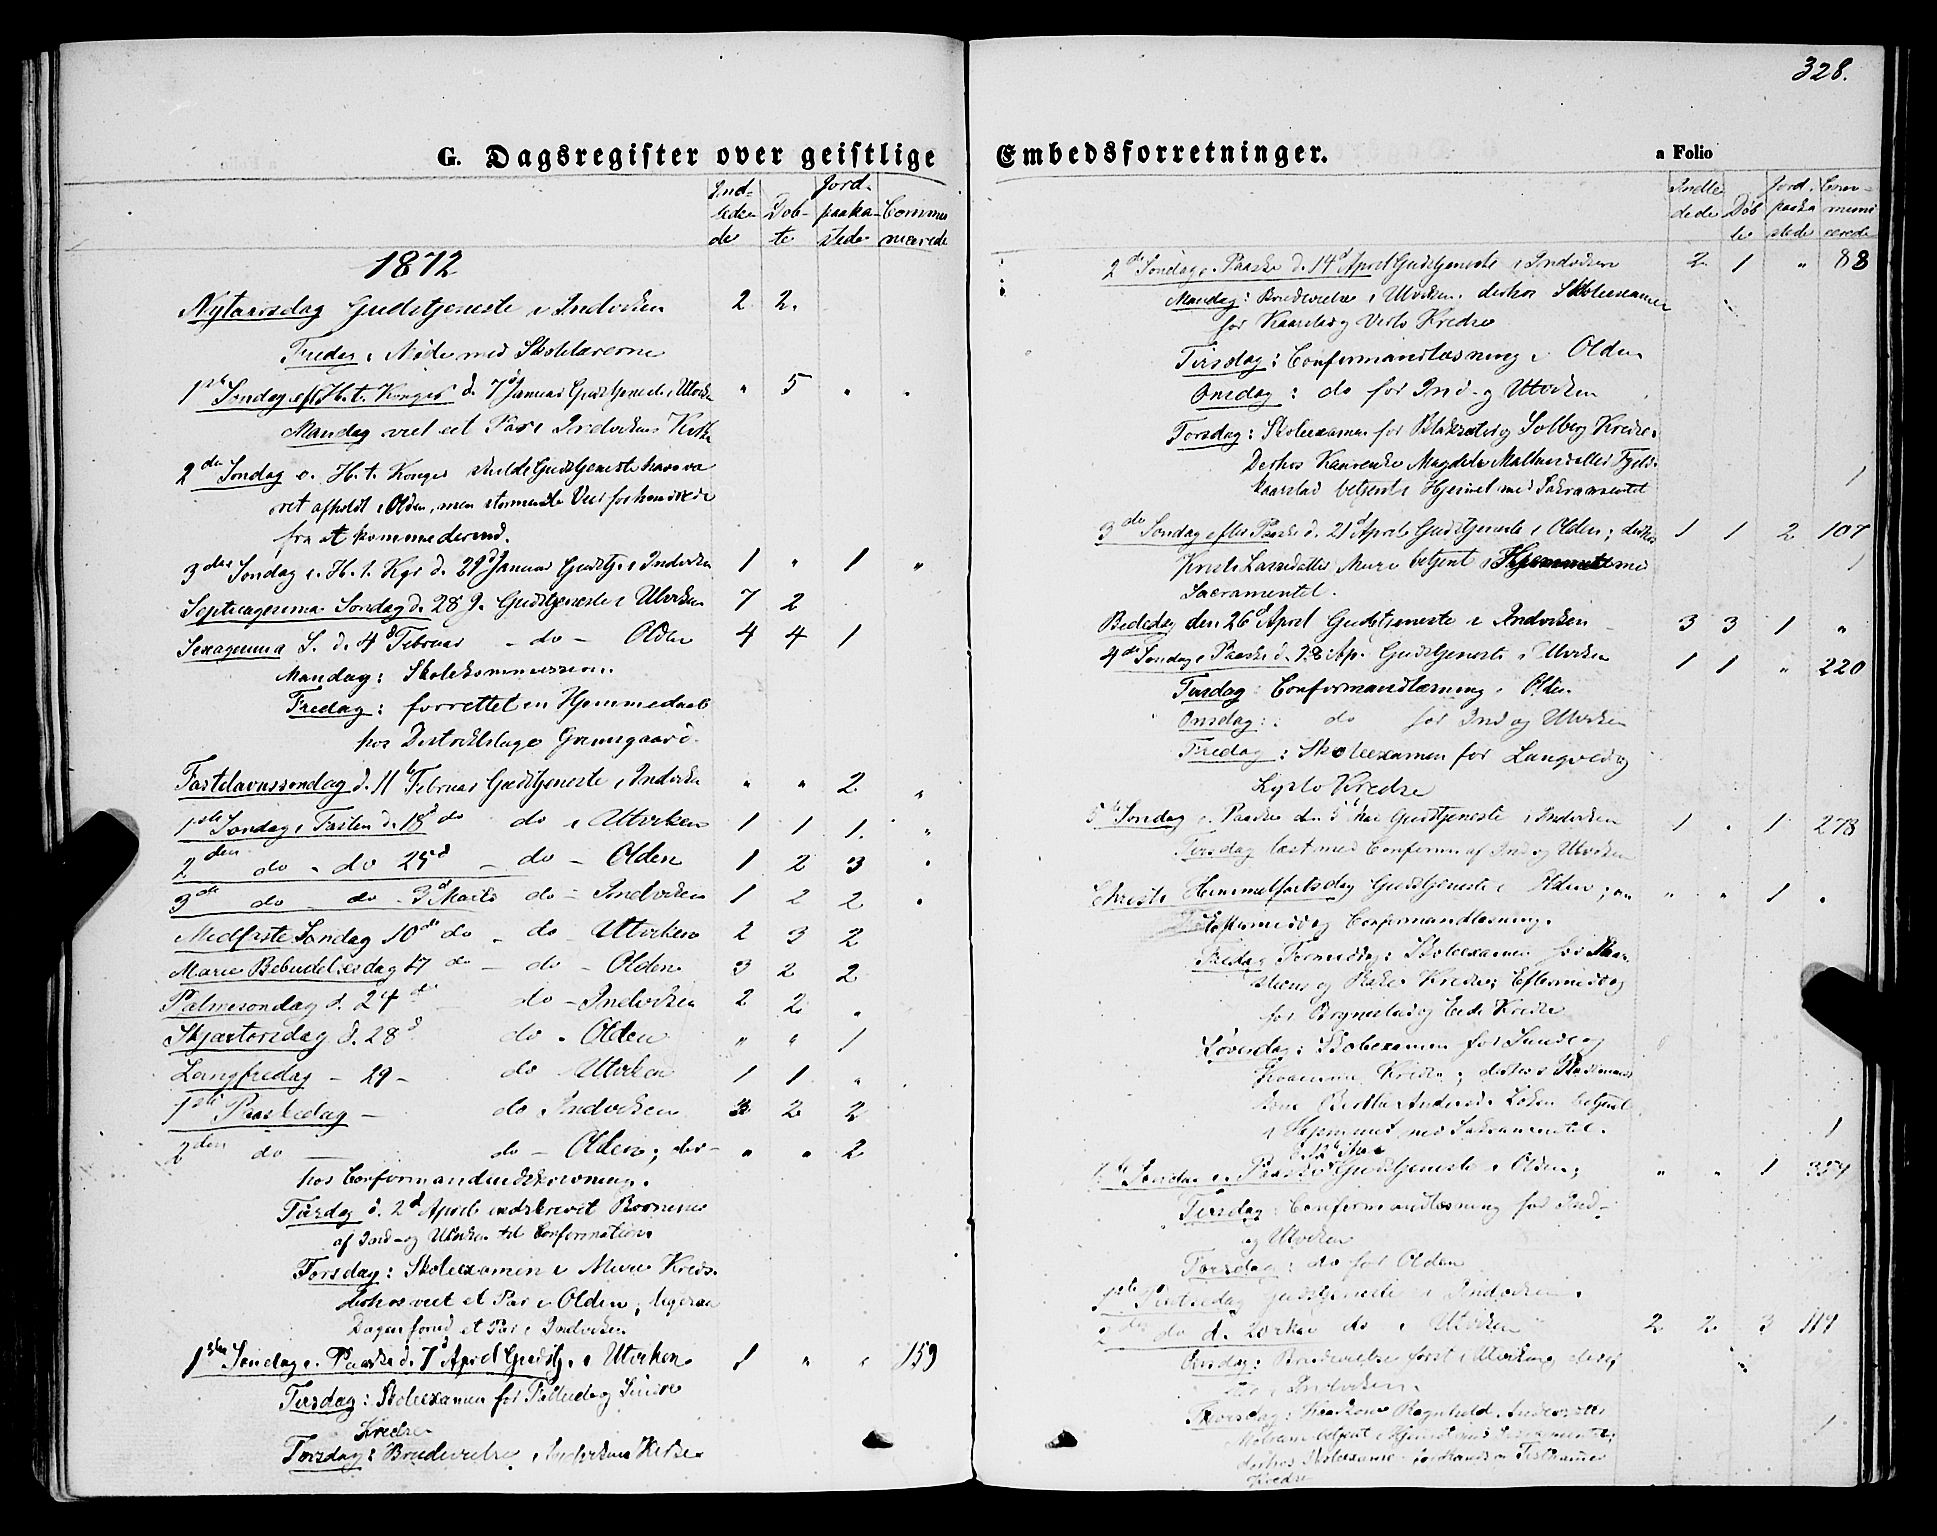 328.
G. Dagsregister over geistlige Embedsforretninger.
a Folio
Ind-
ledede Døb-te Jord-paakastede Communicerede
1872
Nytaarsdag Gudstjeneste i Indviken 2 2.
Fredag: Møde med Skolelærerne
1ste Søndag eft H. t. Konger d. 7d Januar Gudstjeneste i Utviken " 5 " "
Mandag viet eet Par i Indvikens Kirke
2den Søndag e. H. t. Konger skulde Gudstjeneste have væ
ret afholdt i Olden, men stormende Veir forhindrede
fra at komme derind.
3die Søndag e. H. t. Kgr d. 21d Januar Gudstj. i Indviken 1 " 1 "
Septuagesima Søndag d. 28 J. Gudstjeneste i Utviken 7 2
Sexagesima S. d. 4d Februar - do - Olden 4 4 1
Mandag: Skolekommission.
Fredag: forrettet en Hjemmedaab
hos Distriktslæge
Fastelavnssøndag d. 11te Februar Gudstjeneste i Indviken " " 2 "
1ste Søndag i Fasten d. 18d do do i Utviken 1 1 1. "
2den do - do 25d - do - Olden 1 2 3 "
3die do - do - 3d Marts do - Indviken 1 2 2 "
Midfaste Søndag 10de do - do - Utviken 2 3 2
Mariæ Bebudelsesdag 17 do - do - Olden 3 2 2
Palmesøndag d. 24 do do - Indviken 2 2 "
Skjærtorsdag d. 28d do - Olden " " 1
Langfredag - 29 - do Utviken 1 1 "
1ste Paaskedag - do Indviken 3 2 2
2den do - do - Olden; der- " " 2
hos Confirmandindskrivning.
Tirsdag d. 2d April indskrevet Børnene
af Ind- og Utviken til Confirmation.
Torsdag: Skoleexamen i Muri Kreds
derhos viet et Par i Olden; ligesaa
Dagen forud et Par i Indviken
1ste Søndag e. Paaske d. 7d April Gudstj. i Utviken 1 " " 159
Tirsdag: Skoleexamen for og
Kredse
Torsdag: Brudevielse i Indvikens Kirke
Indledede Døbte Jord-paakastede Communicerede
2de Søndag e. Paaske d. 14d April Gudstjeneste i Indviken 2 1 " 88
Mandag: Brudevielse i Utviken, derhos Skoleexamen
for Kaarstad og Kredse
Tirsdag: Confirmandlæsning i Olden
Onsdag: do for Ind- og Utviken
Torsdag: Skoleexamen for og Solberg Kredse.
Derhos Mathusdatter
Kaarstad betjent i Hjemmet med Sakramentet 1
3die Søndag efter Paaske d. 21d April Gudstjeneste i Olden; derhos 1 1 2 107
Lassedatter Muri betjent i Hjemmet med 1
Sacramentet.
Bededag den 26d April Gudstjeneste i Indviken - 3 3 1 "
4de Søndag e Paaske d. 28 Ap. Gudstjeneste i Utviken 1 1 " 220
Tirsdag: Confirmandlæsning i Olden
Onsdag: do for Ind og Utviken
Fredag: Skoleexamen for og
Kredse
5te Søndag e. Paaske den 5te Mai Gudstjeneste i Indviken 1 " 1 278
Tirsdag læst med Confirm. af Ind og Utviken
Christi Himmelfartsdag Gudstjeneste i Olden; om " " 1 "
Eftermiddag Confirmandlæsning.
Fredag Formiddag: Skoleexamen for
og Kredse; Eftermiddag
for og Eide Kredse
Løverdag: Skoleexamen for Sunde og
Kredse; derhos
Berthe Andersd. betjent
i Hjemmet med Sakramentet. 1
d. 12te Mai
Søndag e. Paaske Gudstjeneste i Olden; " " 1 354
Tirsdag: Confirmandlæsning for Ind-
og Utviken
Torsdag: do for Olden
1ste Pintsedag Gudstjeneste i Indviken.
2den do d. 20de Mai do i Utviken 2 2 3
Onsdag: Brudevielse først i Utviken, derefter
i Indviken.
Torsdag: Ragnhild Andersdatter 1
betjent i Hjemmet med Sakramentet;
derhos Skoleexamen
Kredse